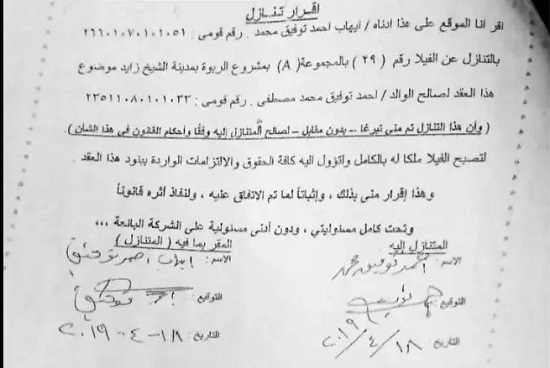 اقرار تنازل
اقر انا الموقع على هذا ادناه / ايهاب احمد توفيق محمد . رقم قومى : ٢٦٦٠١٠٧٠١٠١٠٥١
بالتنازل عن الفيلا رقم ( ٢٩ ) بالمجموعة( A ) بمشروع الربوة بمدينة الشيخ زايد موضوع
هذا العقد لصالح الوالد / احمد توفيق محمد مصطفى . رقم قومى : ٢٣٥١١٠٨٠١٠١٠٣٣
( وان هذا التنازل تم منى تبرعا -- بدون مقابل -- لصالح المتنازل إليه وفقا وأحكام القانون فى هذا الشأن )
لتصبح الفيلا ملكا له بالكامل وتؤول اليه كافة الحقوق والالتزامات الواردة ببنود هذا العقد .
وهذا إقرار منى بذلك ، وإثباتاً لما تم الاتفاق عليه ، ولنفاذ اثره قانوناً
وتحت كامل مسئوليتي ، ودون أدنى مسئولية على الشركة البائعة ،،،
المتنازل إليه
المقر بما فيه ( المتنازل )
الاسم : أحمد توفيق محمد
الاسم : إيهاب احمد توفيق
التوقيع :
التوقيع :
التاريخ : ١٨/٤/٢٠١٩
التاريخ : ١٨-٤-٢٠١٩